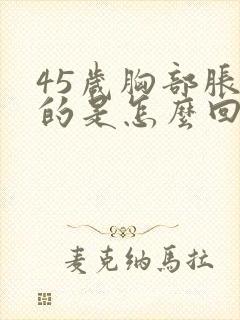 45歲胸部脹
的是怎麼回
麦克纳馬拉